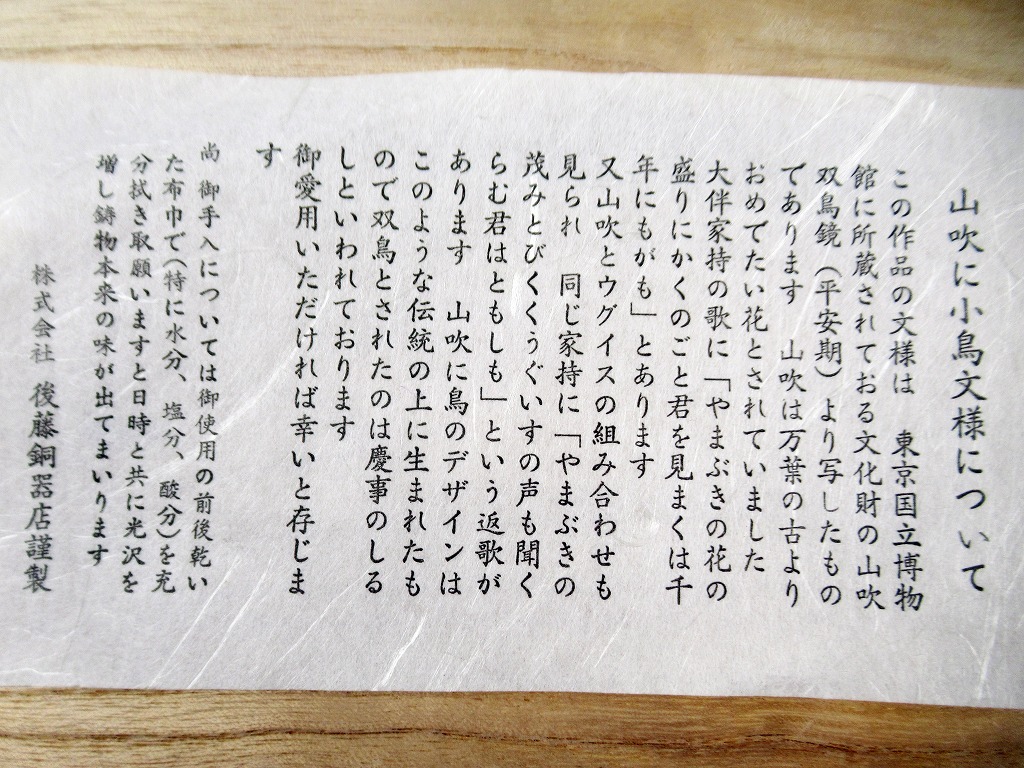 山吹に小鳥文様について
この作品の文様は　東京国立博物
館に所蔵されておる文化財の山吹
双鳥鏡（平安期）より写したもの
であります　山吹は万葉の古より
おめでたい花とされていました
大伴家持の歌に「やまぶきの花の
盛りにかくのごと君を見まくは千
年にもがも」とあります
又山吹とウグイスの組み合わせも
見られ　同じ家持に「やまぶきの
茂みとびくくうぐいすの声も聞く
らむ君はともしも」という返歌が
あります　山吹に鳥のデザインは
このような伝統の上に生まれたも
ので双鳥とされたのは慶事のしる
しといわれております
御愛用いただければ幸いと存じま
す
尚　御手入については御使用の前後乾い
た布巾で（特に水分、塩分、酸分）を充
分拭き取願いますと日時と共に光沢を
増し鋳物本来の味が出てまいります
株式会社　後藤銅器店謹製